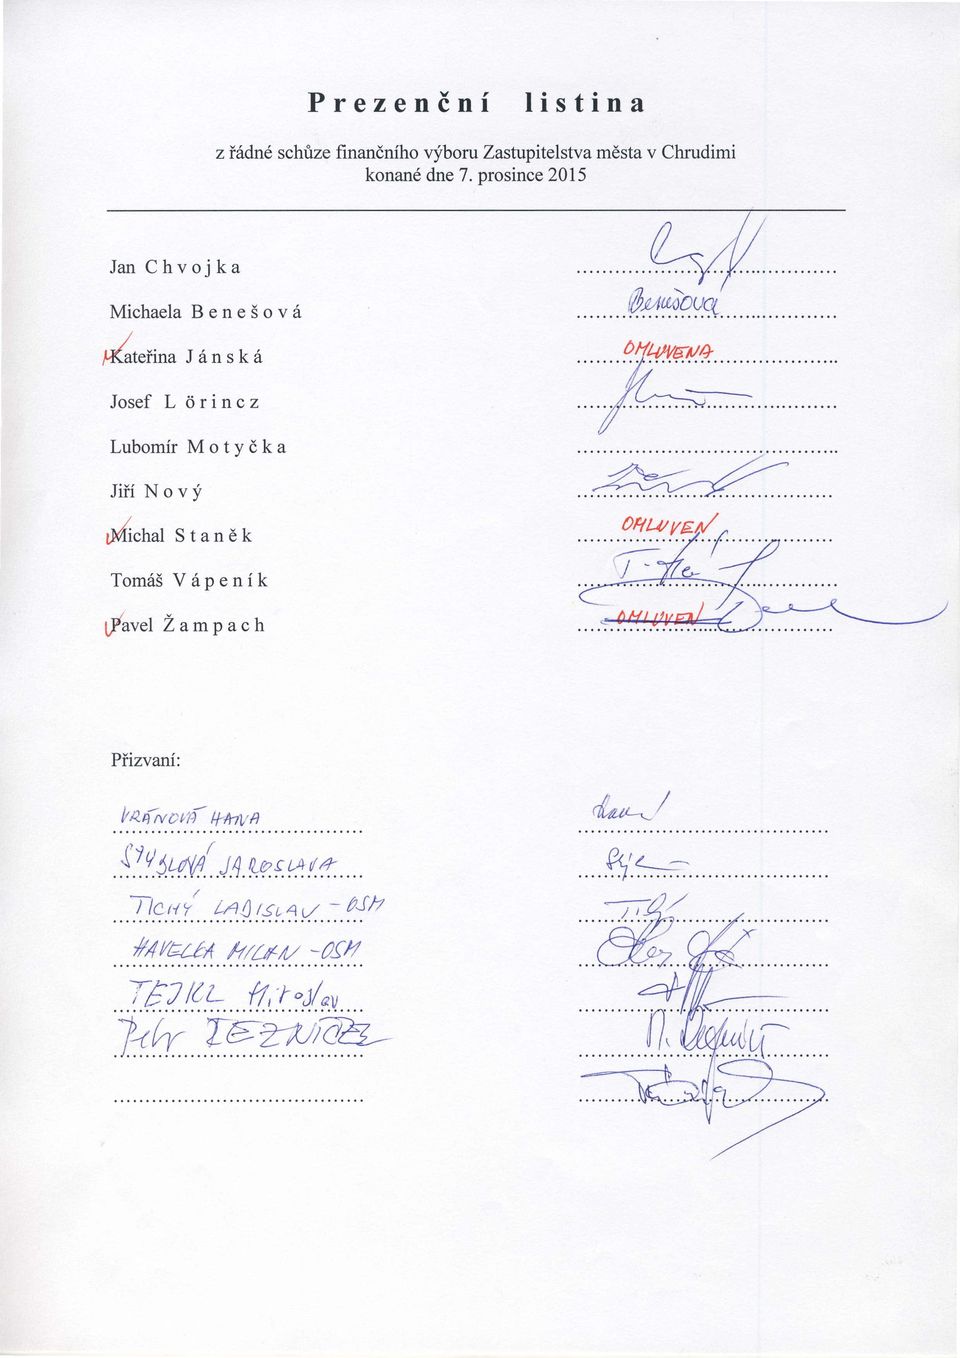 Prezenční listina
z řádné schůze finančního výboru Zastupitelstva města v Chrudimi
konané dne 7. prosince 2015
Jan Chvojka
Michaela Benešová Benešová
Kateřina Jánská OMLUVENA
Josef Lörincz
Lubomír Motyčka
Jiří Nový
Michal Staněk OMLUVEN
Tomáš Vápeník
Pavel Žampach OMLUVEN
Přizvaní:
VRÁNOVÁ HANA
STÝBLOVÁ JAROSLAVA
TICHÝ LADISLAV - OSM
HAVELKA MILAN - OSM
TEJKL Miroslav
Petr ŘEZNÍČEK